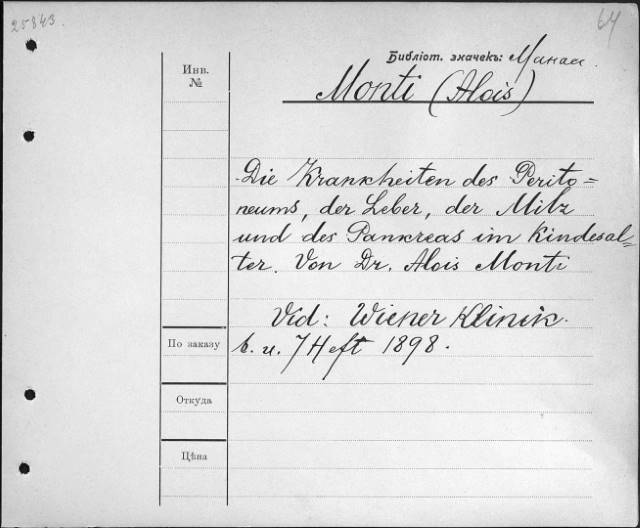 25843.
64
Библіот. значекъ:
Инв.
№
Monti (Alois)
Die Krankheiten des Perito=
neums, der Leber, der Milz
und des Pankreas im Kindesal=
ter. Von Dr. Alois Monti
Vid: Wiener Klinik.
6. u. 7 Heft 1898.
По заказу
Откуда
Цѣна